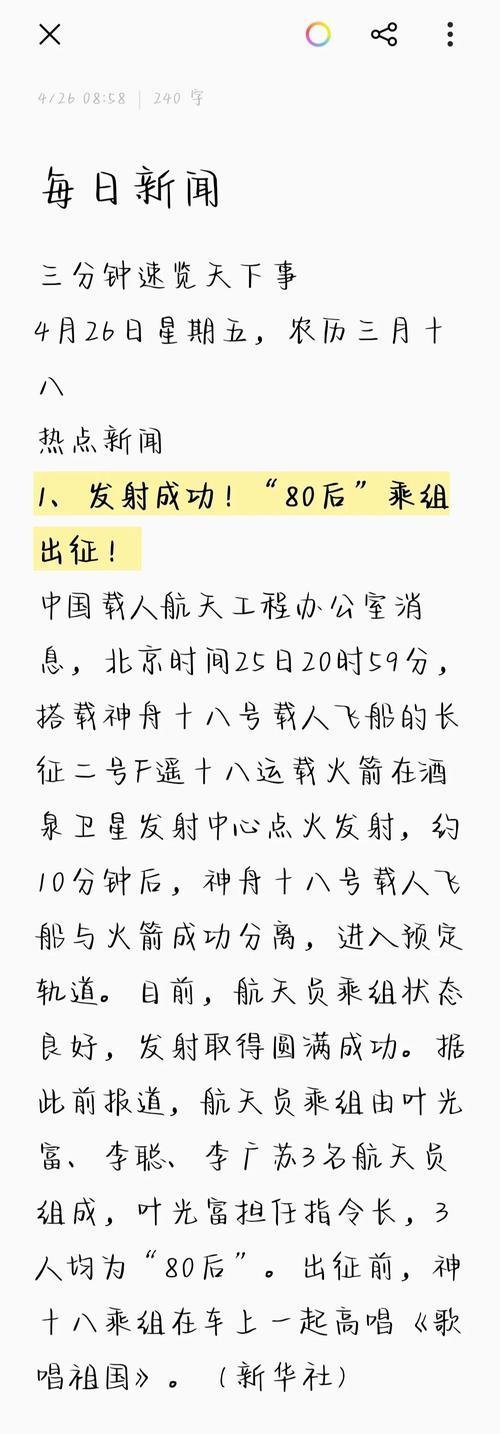 4/26 08:58 | 240 字
每日新闻
三分钟速览天下事
4月26日星期五，农历三月十
八
热点新闻
1、发射成功！“80后”乘组
出征！
中国载人航天工程办公室消
息，北京时间25日20时59分，
搭载神舟十八号载人飞船的长
征二号F遥十八运载火箭在酒
泉卫星发射中心点火发射，约
10分钟后，神舟十八号载人飞
船与火箭成功分离，进入预定
轨道。目前，航天员乘组状态
良好，发射取得圆满成功。据
此前报道，航天员乘组由叶光
富、李聪、李广苏3名航天员
组成，叶光富担任指令长，3
人均为“80后”。出征前，神
十八乘组在车上一起高唱《歌
唱祖国》。（新华社）